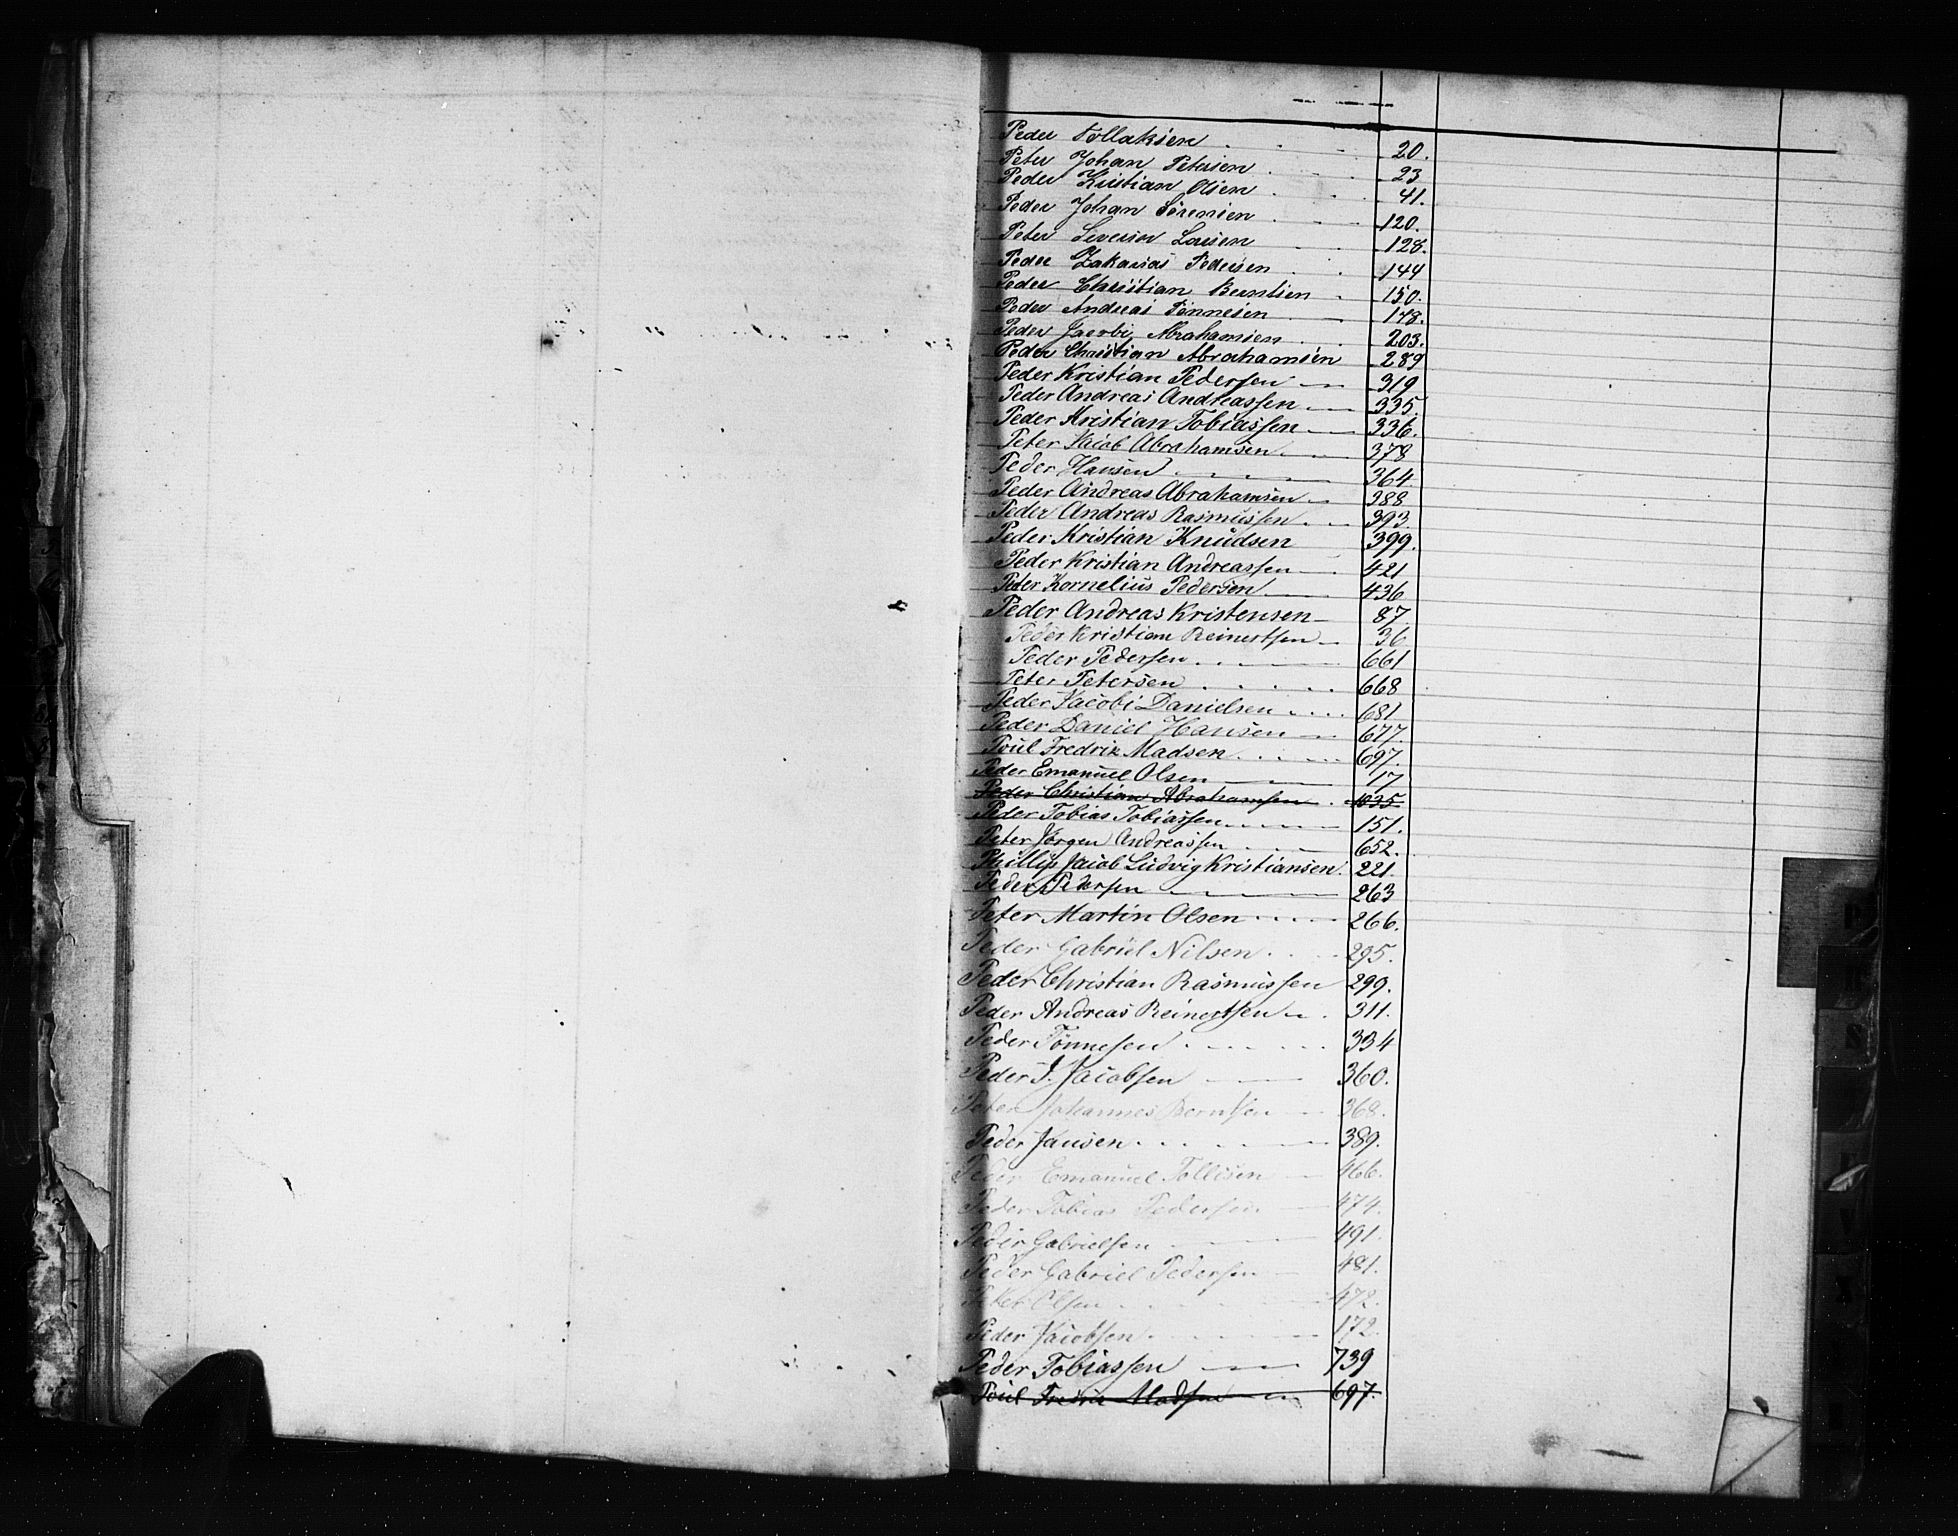 Peder Tollaksen 20.
Peter Johan Petersen 23
Peder Kristian Olsen 41.
Peder Johan Sørensen 120.
Peter Severin Larsen 128.
Peder Zakarias Pedersen 144
Peder Christian Berntsen 150.
Peder Andreas Tønnesen 148.
Peder Jacobi Abrahamsen 203.
Peder Christian Abrahamsen 289
Peder Kristian Pedersen 319
Peder Andreas Andreassen 335.
Peder Kristian Tobiassen 336.
Peter Jacob Abrahamsen 378
Peder Hansen 364
Peder Andreas Abrahamsen 388
Peder Andreas Rasmussen 393.
Peder Kristian Knudsen 399.
Peder Kristian Andreassen 421
Peder Kornelius Pedersen 436
Peder Andreas Kristensen 87.
Peder Kristian Reinertsen 36
Peder Pedersen 661
Peter Petersen 668
Peder Jacobi Danielsen 681
Peder Daniel Hansen 677.
Poul Fredrik Madsen 697.
Peder Emanuel Olsen 17
Peder Christian Abrahamsen 1035
Peder Tobias Tobiassen 151.
Peter Jørgen Andreassen 652.
Phillip Jacob Ludvig Kristiansen 221.
Peder Pedersen 263
Peter Martin Olsen 266.
Peder Gabriel Nilsen 295.
Peder Christian Rasmussen 299.
Peder Andreas Reinertsen 311.
Peder Tønnesen 334
Peder J. Jacobsen 360.
Peter Johannes Berntsen 368.
Peder Jansen 389.
Peder Emanuel Tollisen 466.
Peder Tobias Pedersen 474.
Peder Gabrielsen 491.
Peder Gabriel Pedersen 481.
Peter Olsen 472.
Peder Jacobsen 172.
Peder Tobiassen 739
Poul Fredrik Madsen 697.